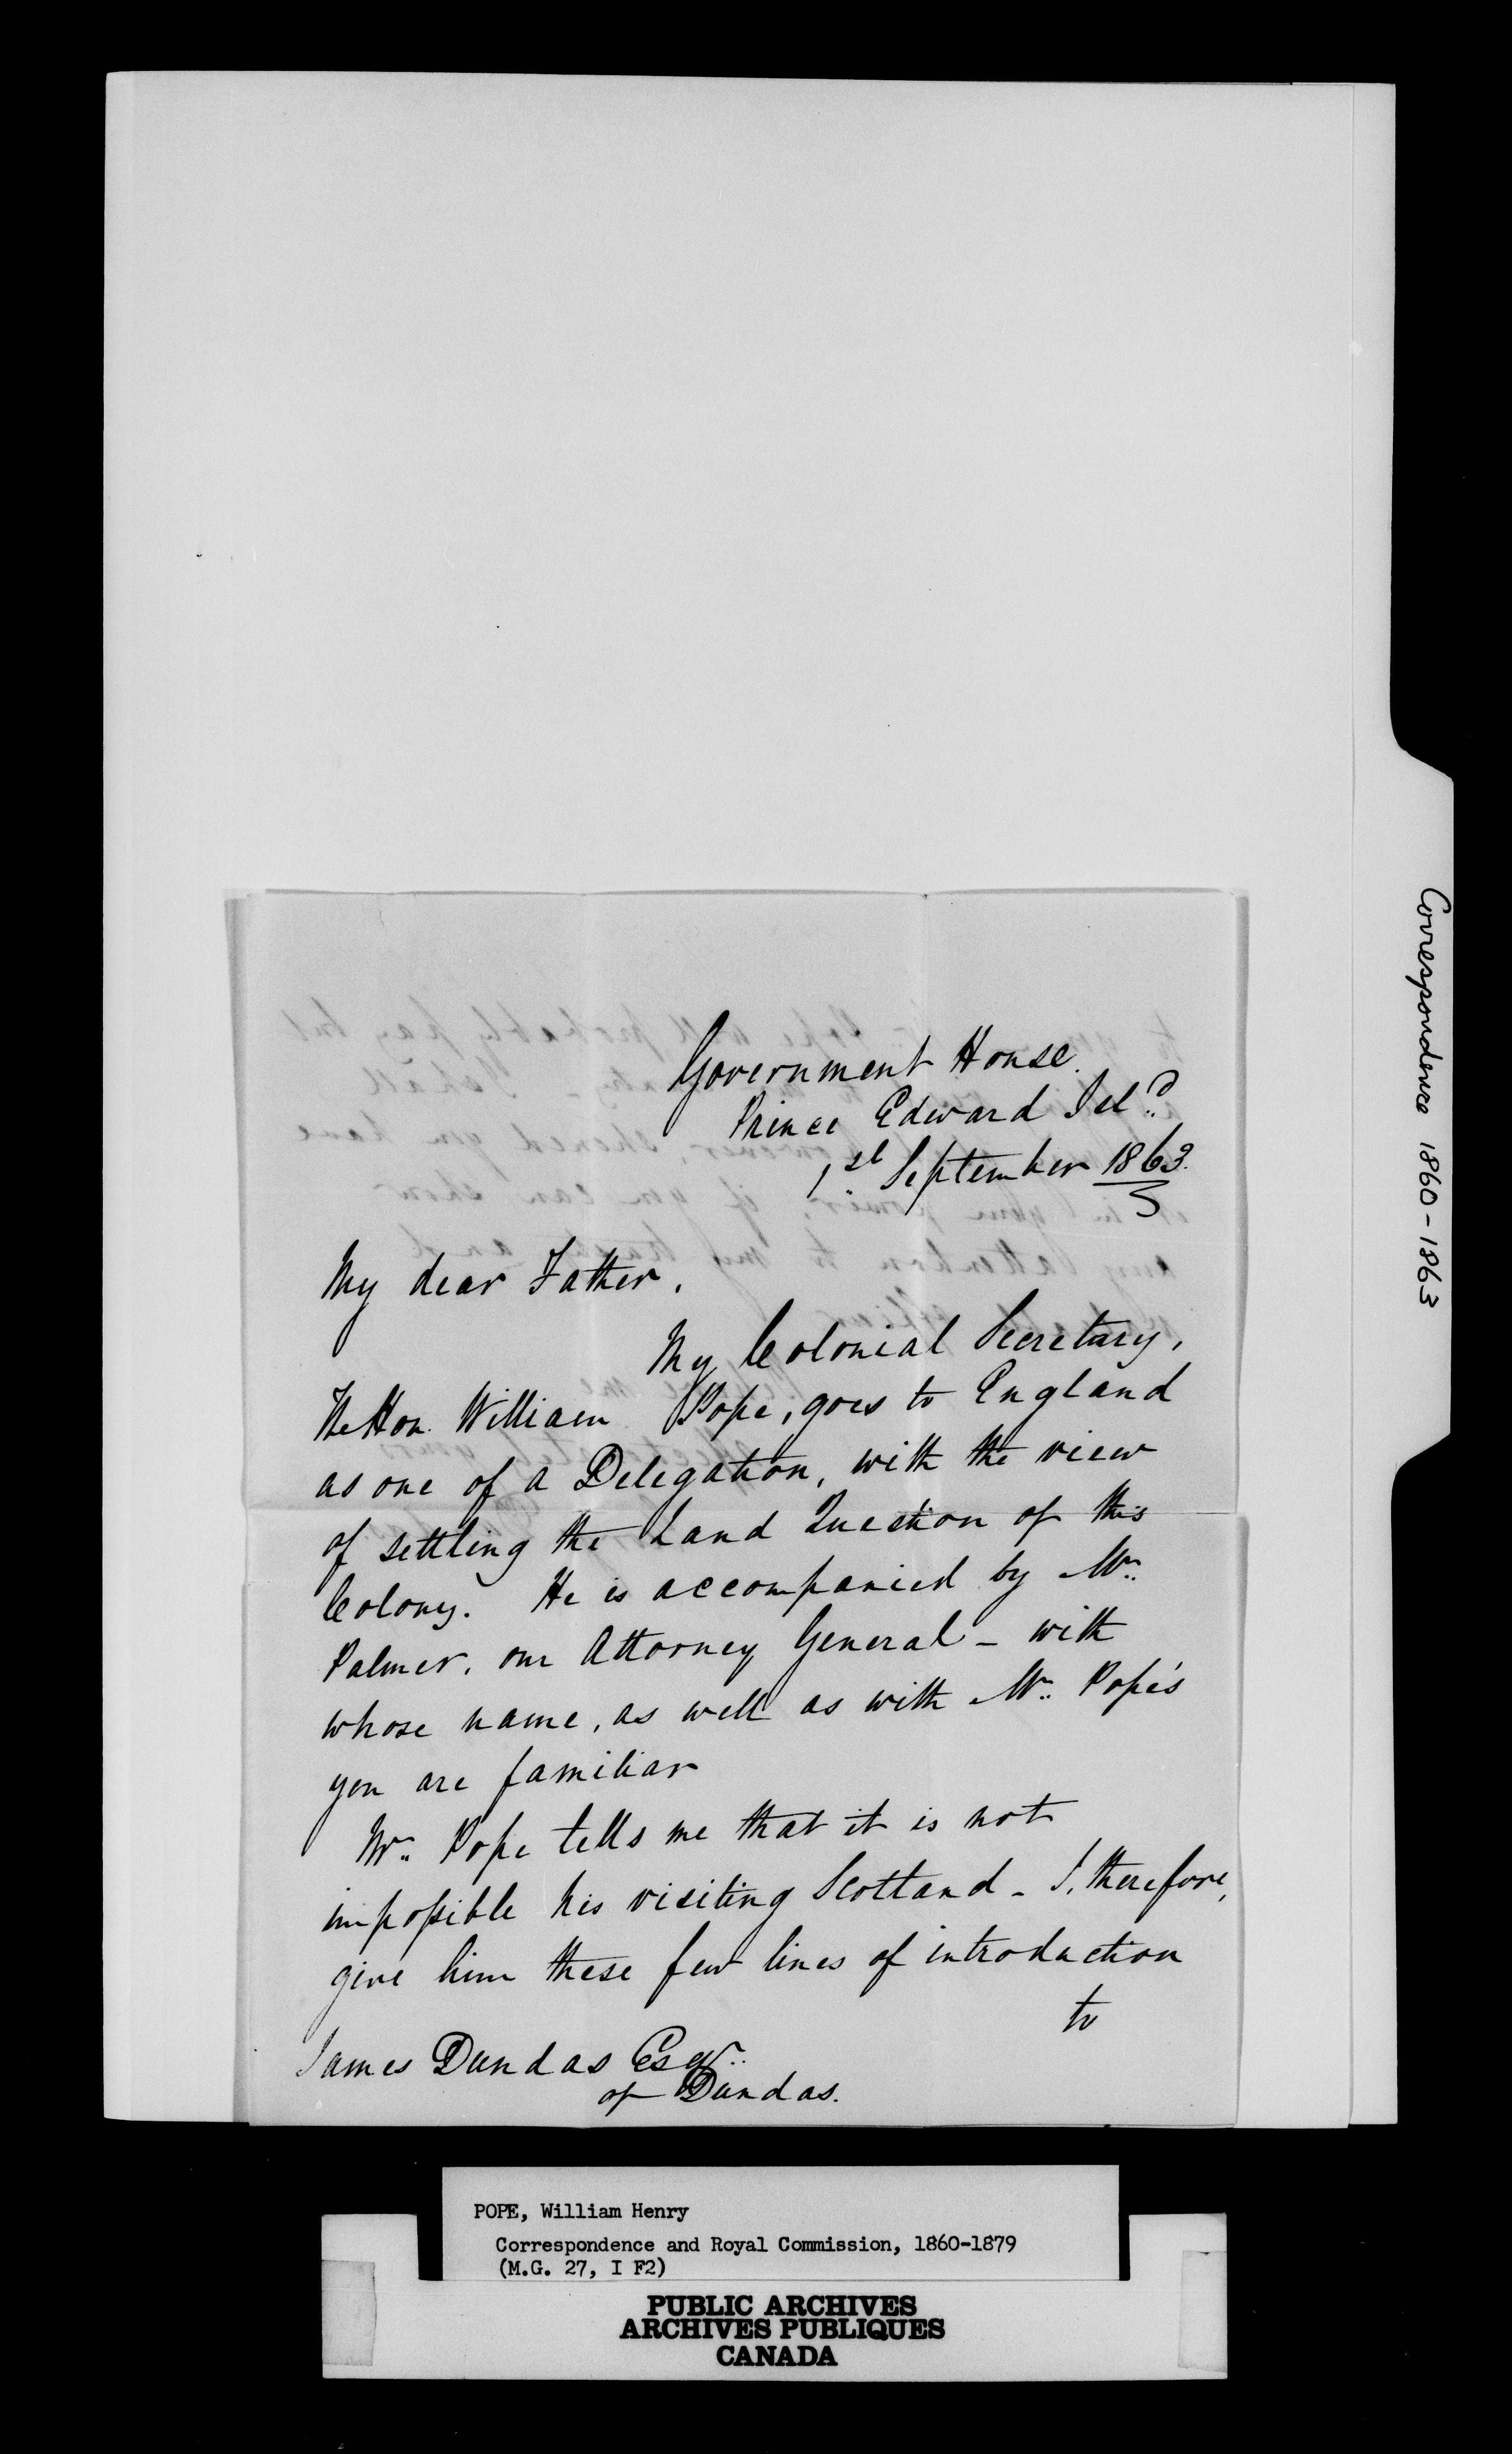 Government House.
Prince Edward Isld.
1st September 1863.
My dear Father,
My Colonial Secretary,
The Hon. William Pope, goes to England
as one of a Delegation, with the view
of settling the Land Question of this
Colony. He is accompanied by Mr.
Palmer, our Attorney General - with
whose name, as well as with Mr. Pope's
you are familiar
Mr. Pope tells me that it is not
impossible his visiting Scotland - I, therefore,
give him these few lines of introduction
to
James Dundas Esqr.
of Dundas.
Correspondence 1860-1863
POPE, William Henry
Correspondence and Royal Commission, 1860-1879
(M.G. 27, I F2)
PUBLIC ARCHIVES
ARCHIVES PUBLIQUES
CANADA